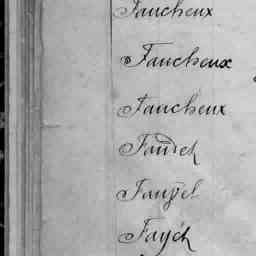 Faucheux
Faucheux
Faucheux
Faudel
Faugel
Fayét